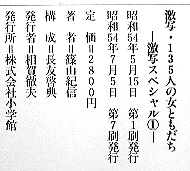 激写・135人の女ともだち
―激写スペシャル①―
昭和54年5月15日　第1刷発行
昭和54年7月5日　第7刷発行
定　価＝2800円
著　者＝篠山紀信
構　成＝長友啓典
発行者＝相賀徹夫
発行所＝株式会社小学館